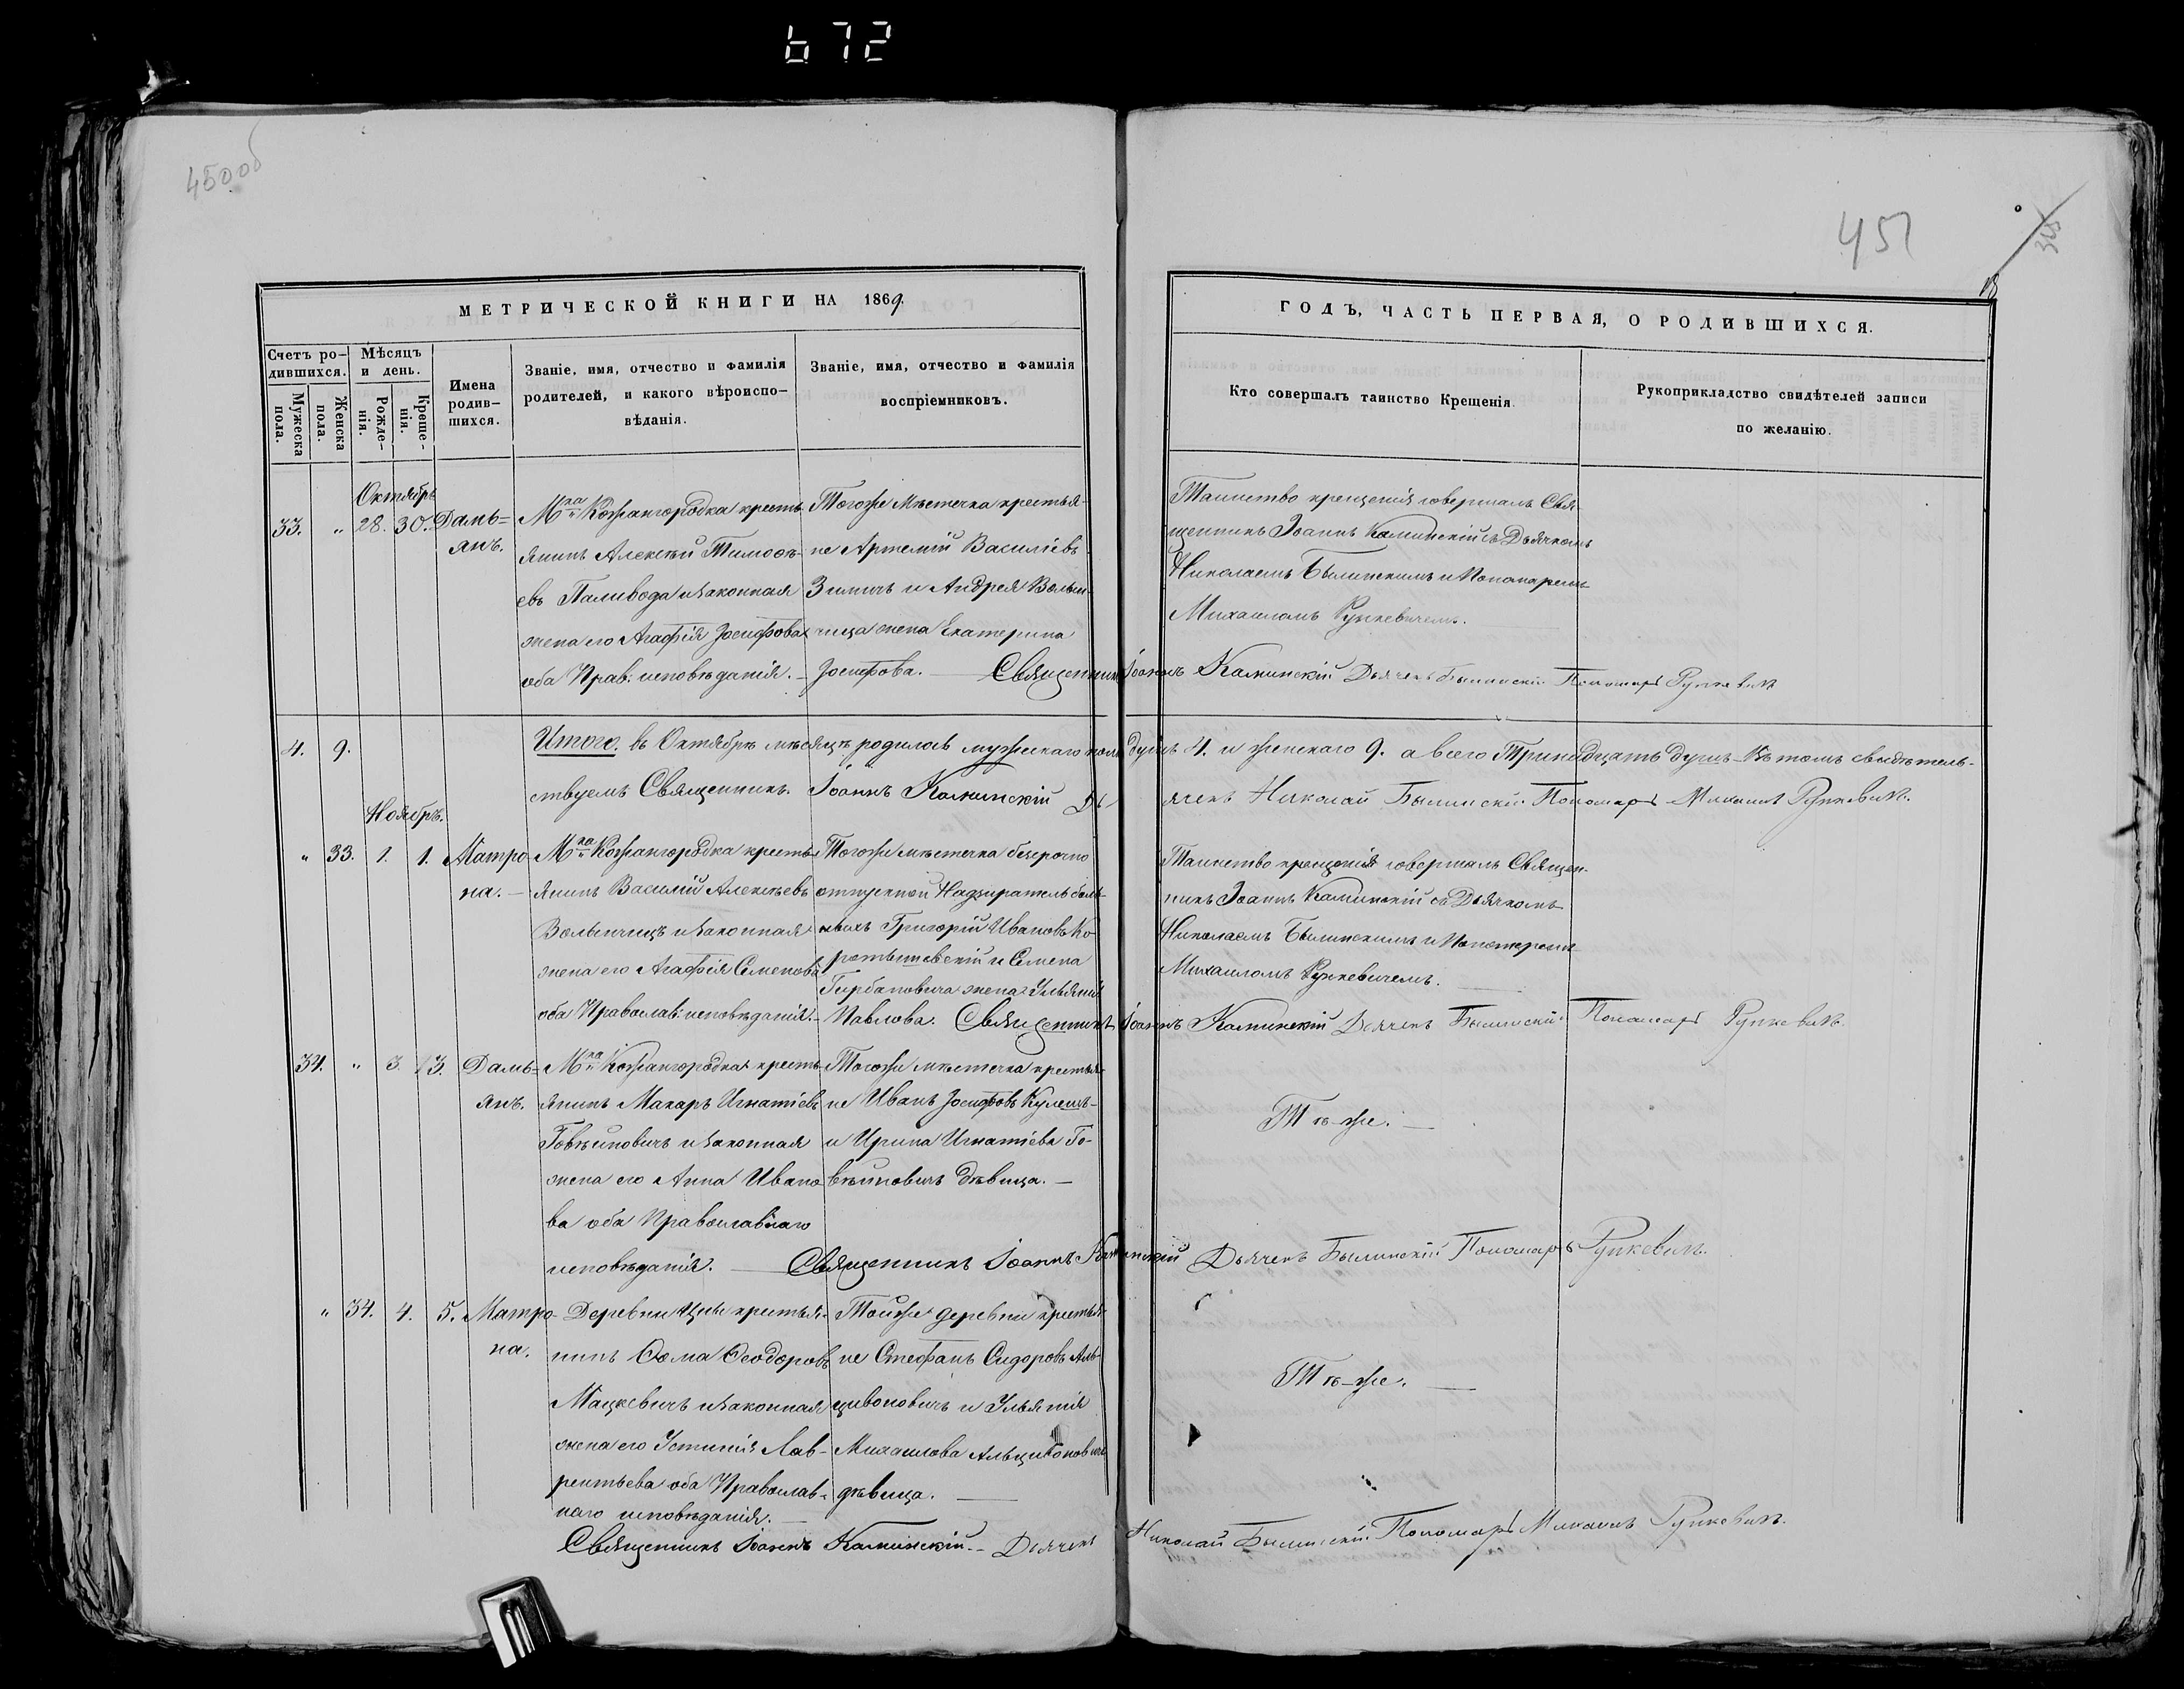 672
450об
451
МЕТРИЧЕСКОЙ КНИГИ НА 1869.
ГОДЪ, ЧАСТЬ ПЕРВАЯ, О РОДИВШИХСЯ.
Счетъ ро-
дившихся.
Мужеска
пола.
Женска
пола.
Мѣсяцъ
и день.
Рожде-
нія.
Креще-
нія.
Имена
родив-
шихся.
Званіе, имя, отчество и фамилія
родителей, и какого вѣроиспо-
вѣданія.
Званіе, имя, отчество и фамилія
воспріемниковъ.
Кто совершалъ таинство Крещенія.
Рукоприкладство свидѣтелей записи
по желанію.
Октябрь
33. „ 28. 30. Дамь=
янъ.
М-ка Кожангородка кресть-
янинъ Алексѣй Тимоѳѣ-
евъ Паливода и законная
жена его Агафія Іосифова
оба Прав: исповѣданія. —
Тогоже мѣстечка крестья-
не Артемій Василіевъ
Зиничъ и Андрея Волын-
чица жена Екатерина
Іосифова. —
Таинство крещенія совершалъ Свя-
щенникъ Іоаннъ Каминскій съ Дьячкомъ
Николаемъ Былинскимъ и Пономаремъ
Михаиломъ Рункевичемъ.
Священникъ Іоаннъ Каминскій Дьячекъ Былинскій Пономарь Рункевичъ
4. 9. Итого. въ Октябрѣ мѣсяцѣ родилось мужескаго пола душъ 4. и женскаго 9. а всего Тринадцать душъ — Въ томъ свидѣтель-
ствуемъ Священникъ Іоаннъ Каминскій Дьячекъ Николай Былинскій Пономарь Михаилъ Рункевичъ.
Ноябрь.
„ 33. 1. 1. Матро-
на. —
М-ка Кожангородка кресть-
янинъ Василій Алексѣевъ
Волынчицъ и законная
жена его Агафія Семенова
оба Православ: исповѣданія. —
Тогоже мѣстечка безсрочно
отпускной Надзиратель боль-
ныхъ Григорій Ивановъ Ко-
ротышевскій и Семена
Гирбановича жена Ульянія
Павлова.
Таинство крещенія совершалъ Священ-
никъ Іоаннъ Каминскій съ Дьячкомъ
Николаемъ Былинскимъ и Пономаремъ
Михаиломъ Рункевичемъ.
Священникъ Іоаннъ Каминскій Дьячекъ Былинскій Пономарь Рункевичъ.
34. „ 3. 3. Дамь=
янъ.
М-ка Кожангородка кресть-
янинъ Макаръ Игнатіевъ
Говѣиновичъ и законная
жена его Анна Ивано-
ва оба Православнаго
исповѣданія. —
Тогоже мѣстечка крестья-
не Иванъ Іосифовъ Кулешъ-
и Ирина Игнатіева Го-
вѣиновичъ дѣвица. —
Тѣ-же. —
Священникъ Іоаннъ Каминскій Дьячекъ Былинскій Пономарь Рункевичъ.
„ 34. 4. 5. Матро-
на.
Деревни Цны крестья-
нинъ Ѳома Ѳеодоровъ
Мацкевичъ и законная
жена его Устинія Лав-
рентьева оба Православ-
наго исповѣданія. —
Тойже деревни крестья-
не Стефанъ Сидоровъ Аль-
цивоновичъ и Ульянія
Михаилова Альцивоновичъ
дѣвица. —
Тѣ-же. —
Священникъ Іоаннъ Каминскій. — Дьячекъ Николай Былинскій. Пономарь Михаилъ Рункевичъ.